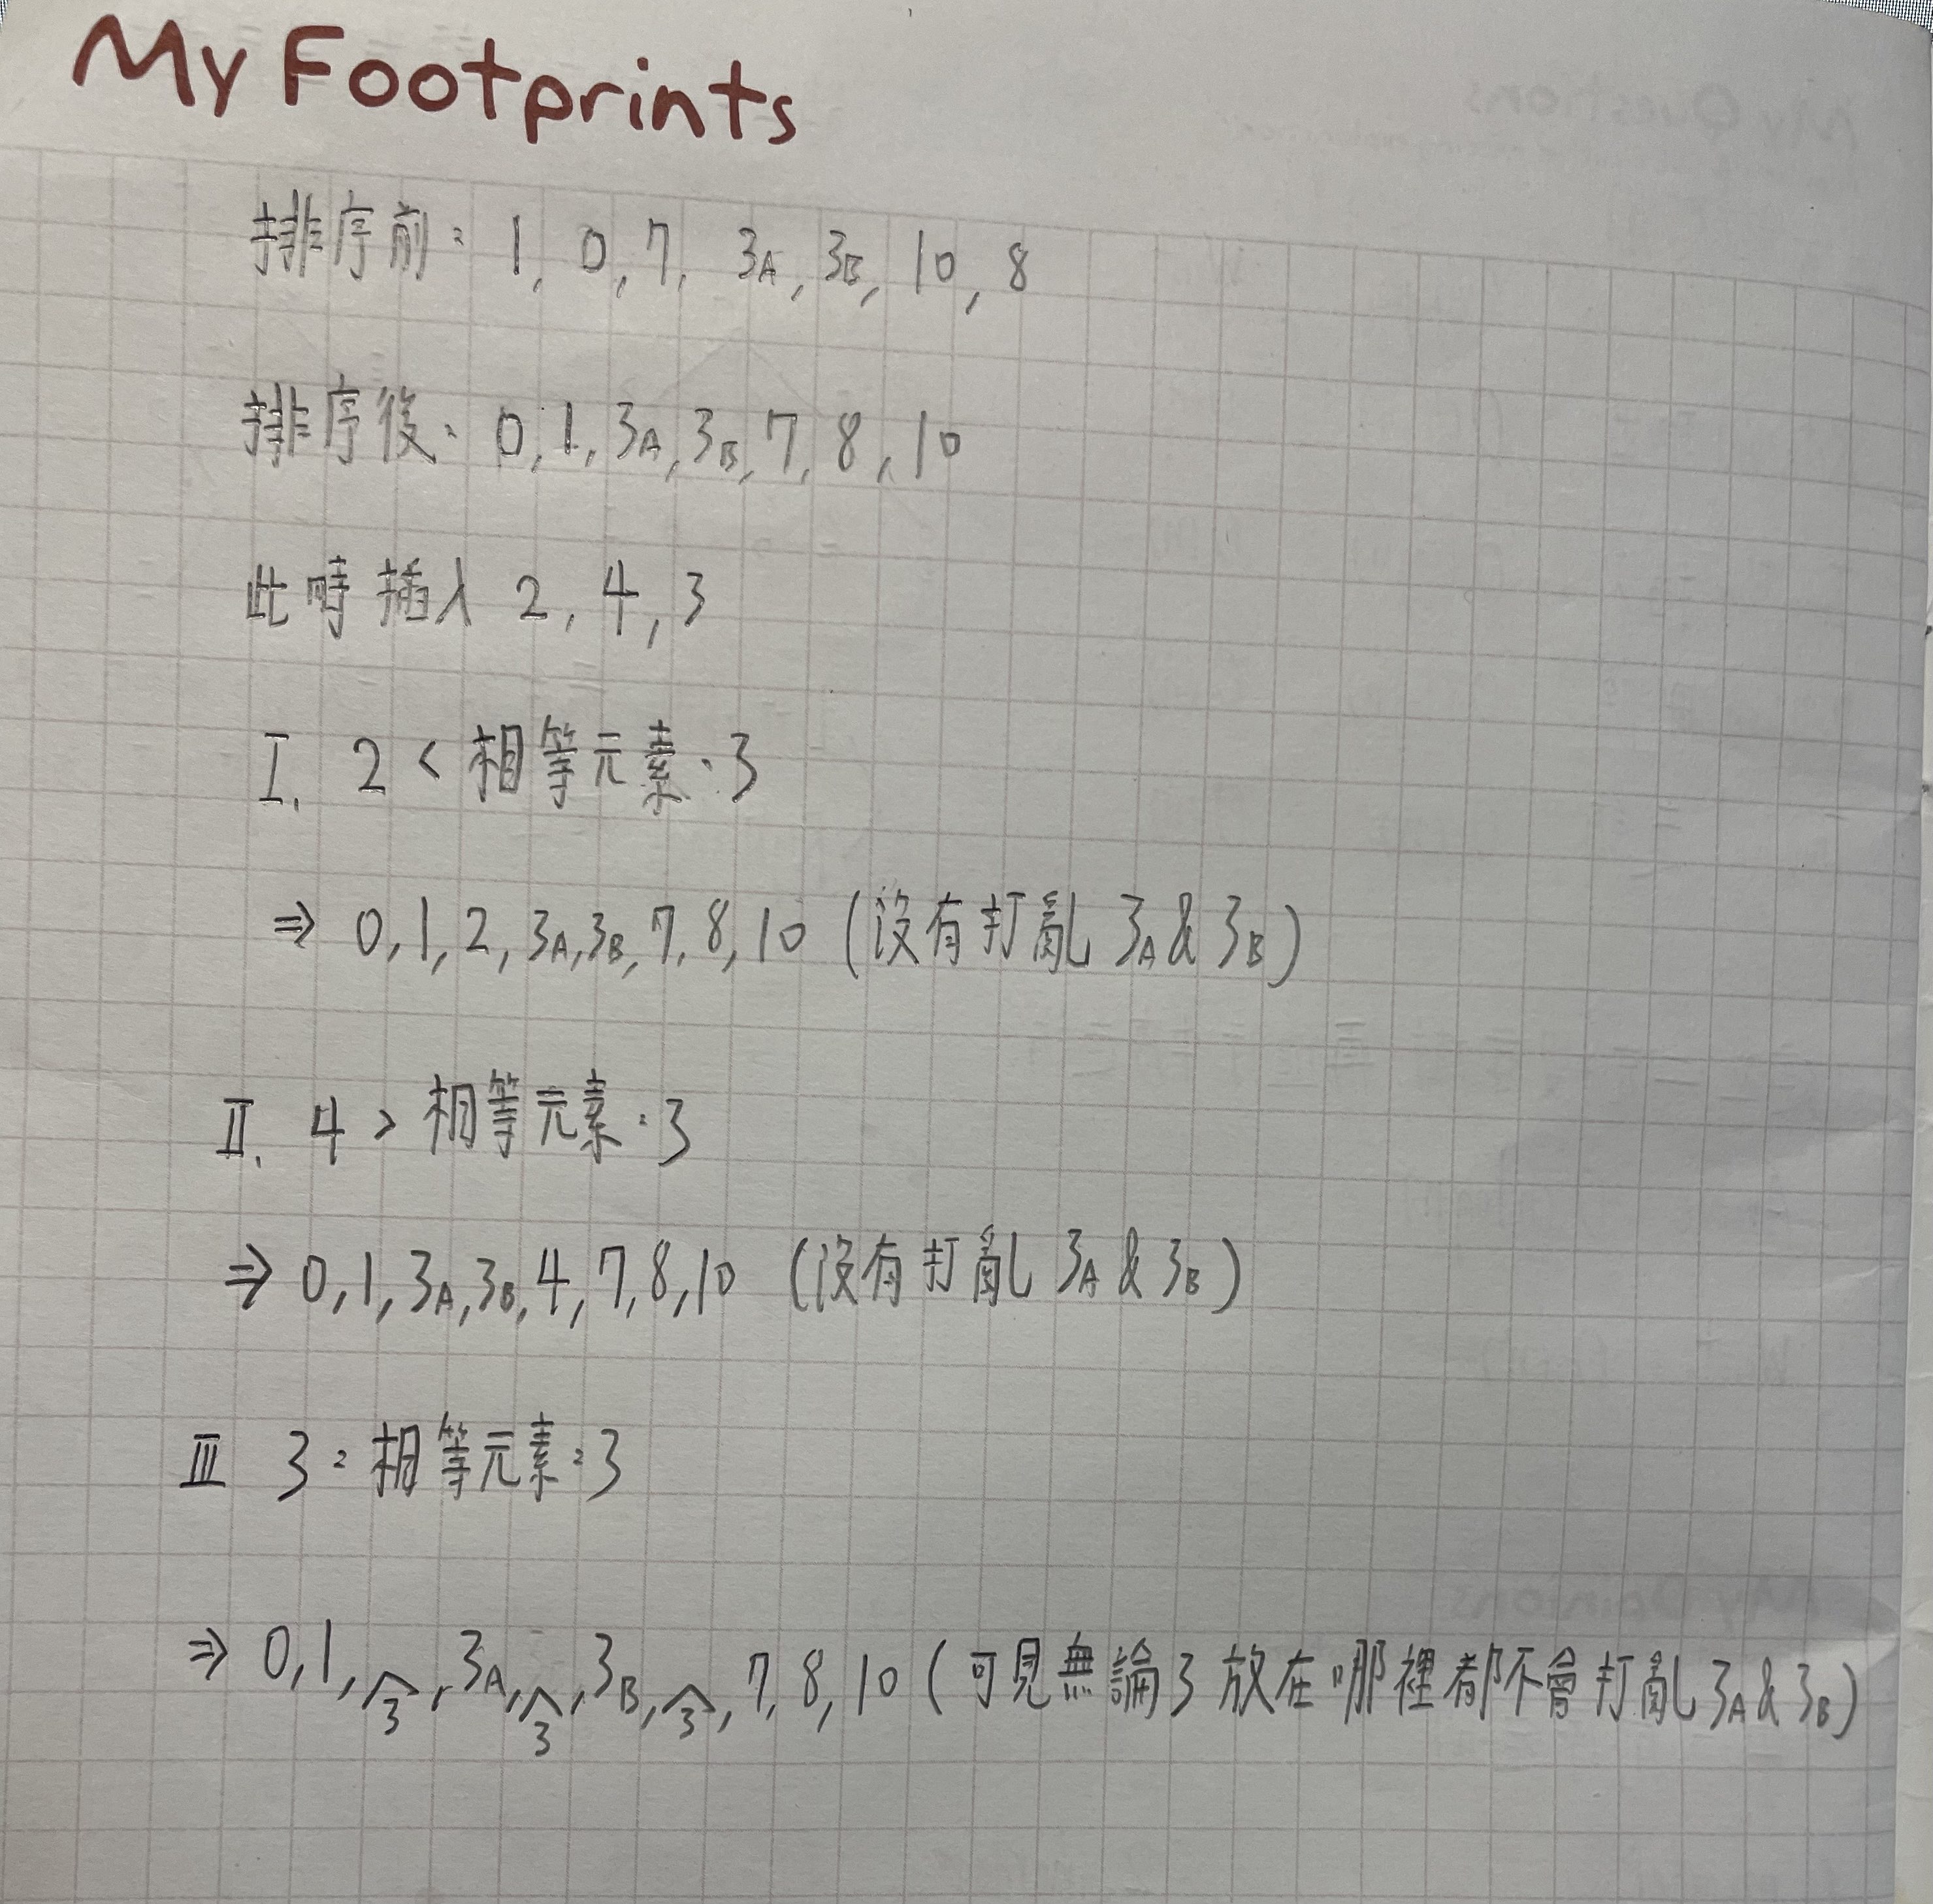 My Footprints
排序前: 1, 0, 7, 3A, 3B, 10, 8
排序後: 0, 1, 3A, 3B, 7, 8, 10
此時插入 2, 4, 3
I. 2 < 相等元素:3
⇒ 0, 1, 2, 3A, 3B, 7, 8, 10 (沒有打亂 3A & 3B)
II. 4 > 相等元素:3
⇒ 0, 1, 3A, 3B, 4, 7, 8, 10 (沒有打亂 3A & 3B)
III 3 = 相等元素:3
⇒ 0, 1, 3, 3A, 3, 3B, 3, 7, 8, 10 (可見無論3放在哪裡都不會打亂3A & 3B)